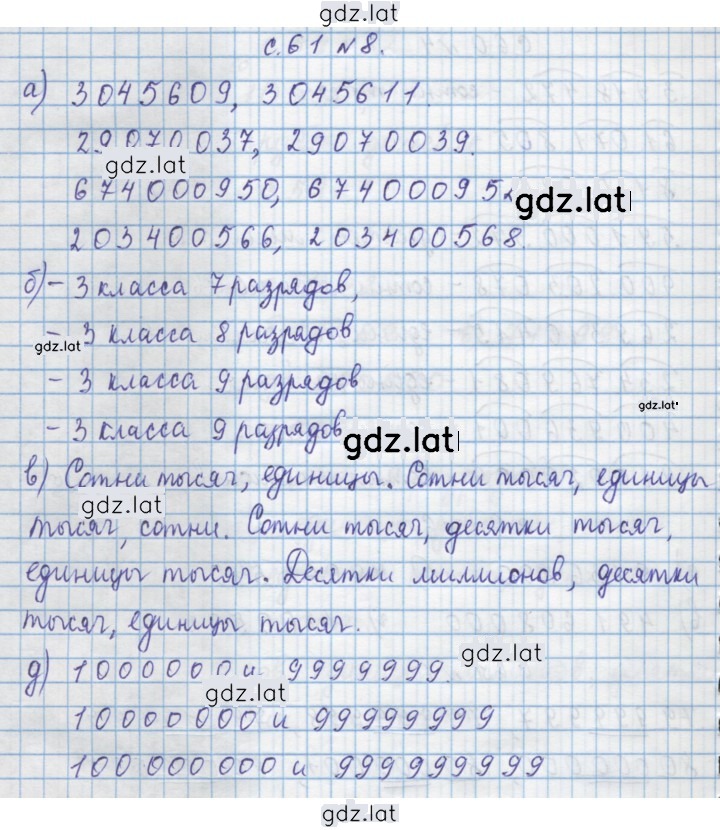 gdz.lat
с. 61 №8.
а) 3045609, 3045611.
29070037, 29070039.
gdz.lat
674000950, 67400095
gdz.lat
203400566, 203400568.
б) - 3 класса 7 разрядов,
- 3 класса 8 разрядов
gdz.lat
- 3 класса 9 разрядов
gdz.lat
- 3 класса 9 разрядов
gdz.lat
в) Сотни тысяч, единицы. Сотни тысяч, единицы
gdz.lat
тысяч, сотни. Сотни тысяч, десятки тысяч,
единицы тысяч. Десятки миллионов, десятки
тысяч, единицы тысяч.
gdz.lat
д) 1000000 и 9999999.
gdz.lat
10000000 и 99999999
100 000 000 и 999999999
gdz.lat